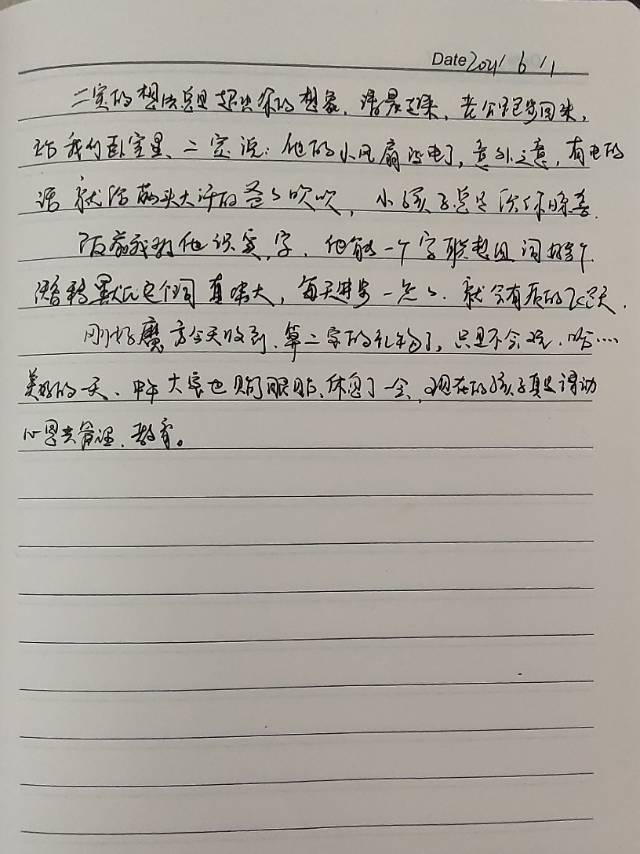 Date 2021 6/1
二宝的想法总是超出你的想象,清晨起来,老公跑步回来,
站我们卧室里、二宝说:他的小风扇没电了,言外之意,有电的
话就给满头大汗的爸爸吹吹,小孩子总是给你惊喜.
陪二宝识字,他能一个字联想组词
潜移默化这个词真强大,每天进步一点点.就会有质的飞跃.
刚好魔方今天收到.算二宝的礼物了,只是不会玩.哈….
美好的一天、中午大宝也贝阿眼贴、休息了一会,现在的孩子真是得动
心思去管理、教育。